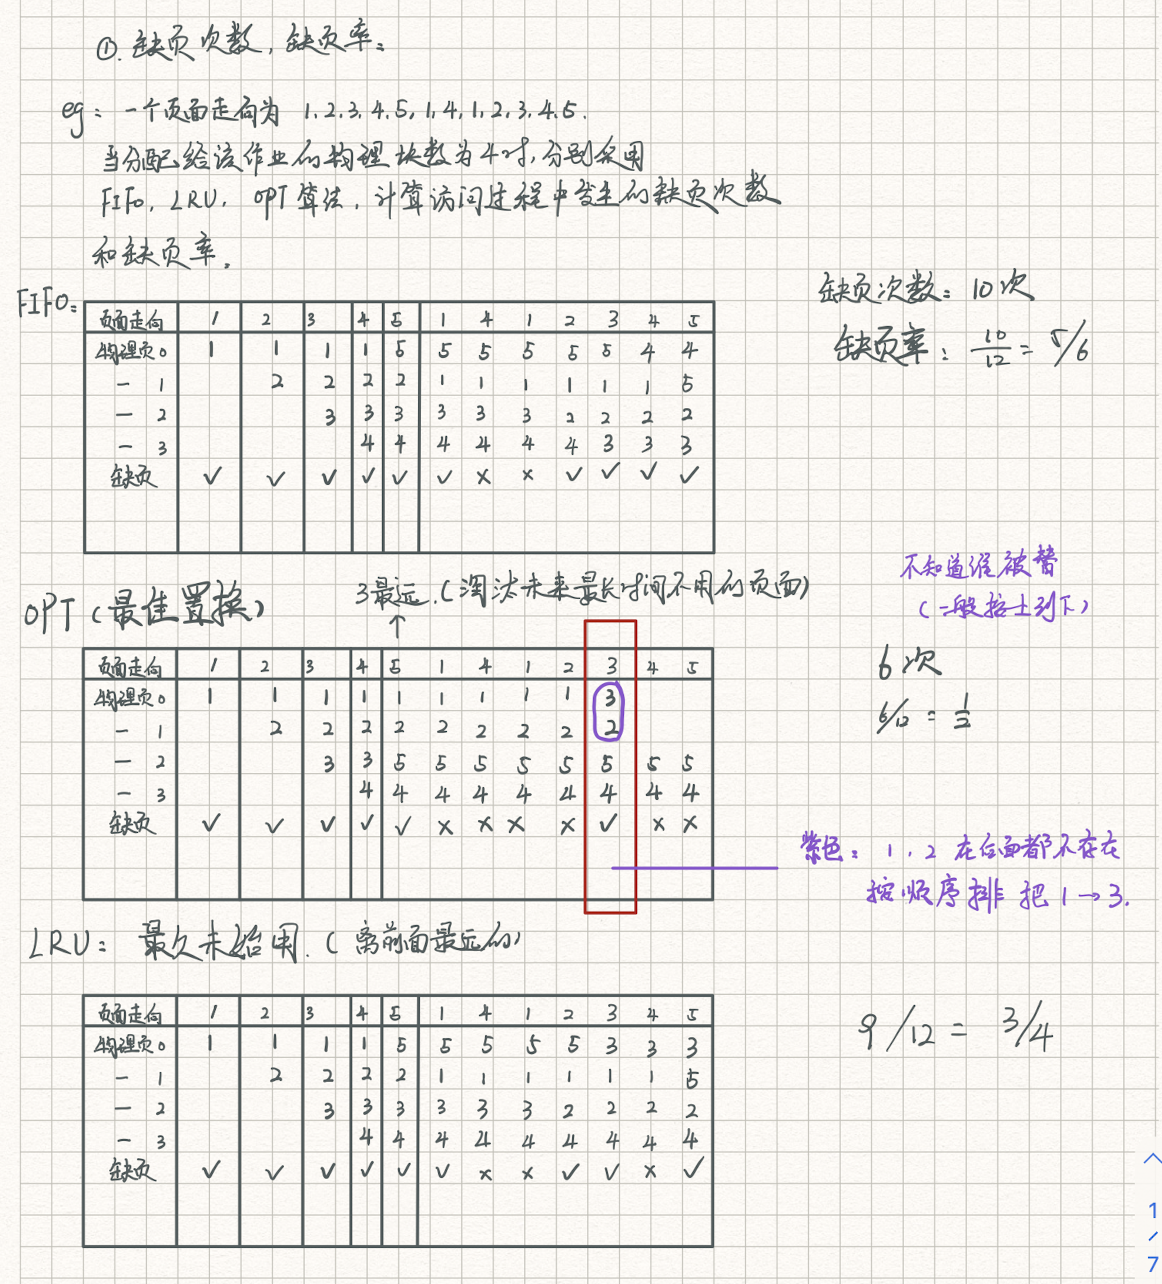 ①. 缺页次数, 缺页率。
eg: 一个页面走向为 1.2.3.4.5,1,4,1,2,3.4.5.
当分配给该作业的物理块数为4时,分别采用
FIFO, LRU, OPT算法,计算访问过程中发生的缺页次数
和缺页率.
FIFO:
页面走向 1 2 3 4 5 1 4 1 2 3 4 5
物理页0 1 1 1 1 5 5 5 5 5 5 4 4
一 1 2 2 2 2 1 1 1 1 1 1 5
一 2 3 3 3 3 3 3 2 2 2 2
一 3 4 4 4 4 4 4 3 3 3
缺页 ✓ ✓ ✓ ✓ ✓ ✓ × × ✓ ✓ ✓ ✓
缺页次数: 10次
缺页率: 10/12 = 5/6
OPT(最佳置换)
3最远.(淘汰未来最长时间不用的页面)
↑
页面走向 1 2 3 4 5 1 4 1 2 3 4 5
物理页0 1 1 1 1 1 1 1 1 1 3
一 1 2 2 2 2 2 2 2 2 2
一 2 3 3 5 5 5 5 5 5 5 5
一 3 4 4 4 4 4 4 4 4 4
缺页 ✓ ✓ ✓ ✓ ✓ × × × × ✓ × ×
不知道谁被替
(一般按上到下)
6次
6/12 = 1/2
紫色: 1,2 在后面都不存在
按顺序排 把1→3.
LRU: 最久未使用.(离前面最远的)
页面走向 1 2 3 4 5 1 4 1 2 3 4 5
物理页0 1 1 1 1 5 5 5 5 5 3 3 3
一 1 2 2 2 2 1 1 1 1 1 1 5
一 2 3 3 3 3 3 3 2 2 2 2
一 3 4 4 4 4 4 4 4 4 4
缺页 ✓ ✓ ✓ ✓ ✓ ✓ × × ✓ ✓ × ✓
9/12 = 3/4
1
/
7